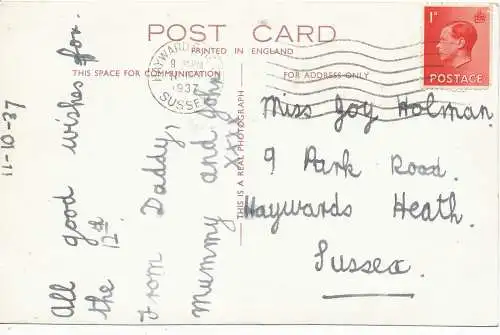 POST CARD
PRINTED IN ENGLAND
THIS SPACE FOR COMMUNICATION
FOR ADDRESS ONLY
THIS IS A REAL PHOTOGRAPH
HAYWARDS
1937
SUSSEX
1D
POSTAGE
11-10-37
All good wishes for
the 12th
From Daddy,
Mummy and John
xxxx
Miss Joy Holman
9 Park Road.
Haywards Heath.
Sussex.